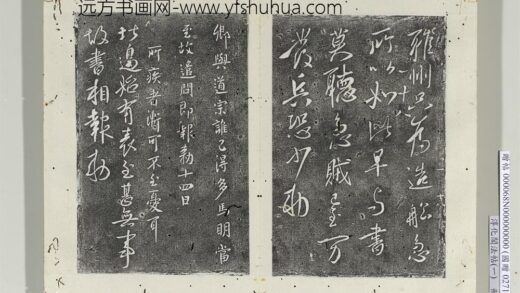 远方书画网-www.yfshuhua.com
雅州只為造船急
一十八
所以如此早與書
莫聽急賊至萬
發兵恐少勅
卿與道宗誰已得多馬明當
至故遣問即報勅十四日
所疾者漸可不至憂耳
北邊始有表至甚無事
故書相報勅
淳化閣法帖(一)